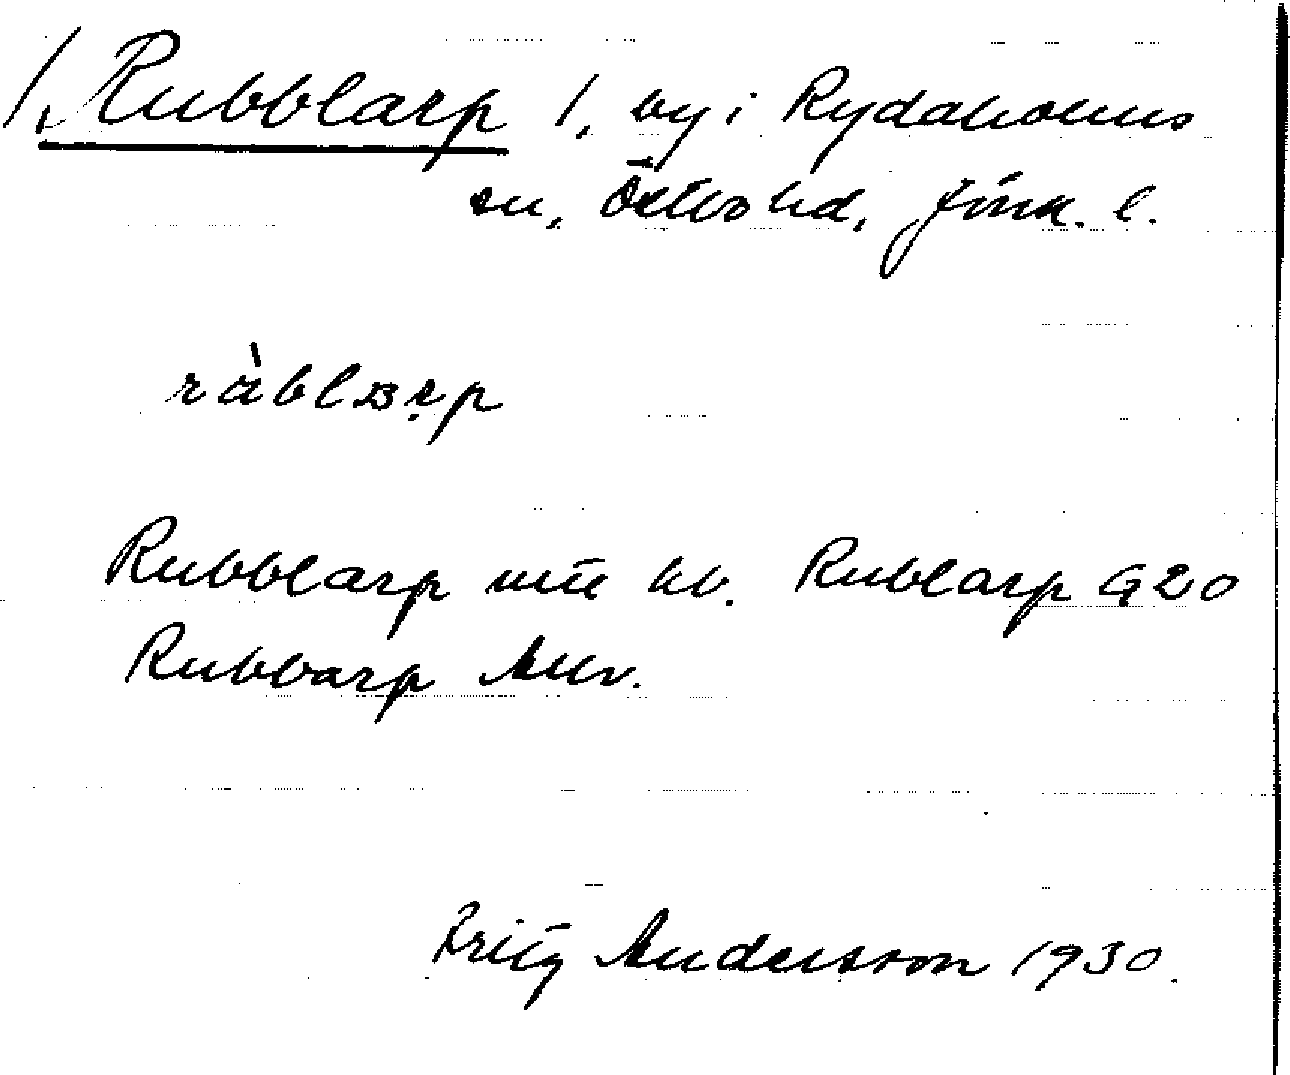 Rubblarp 1, by i Rydaholms
sn, Östbo hd, Jönk. l.
Rubblarp
Rublarp G20
Rubbarp
Fritz Andersson 1930.